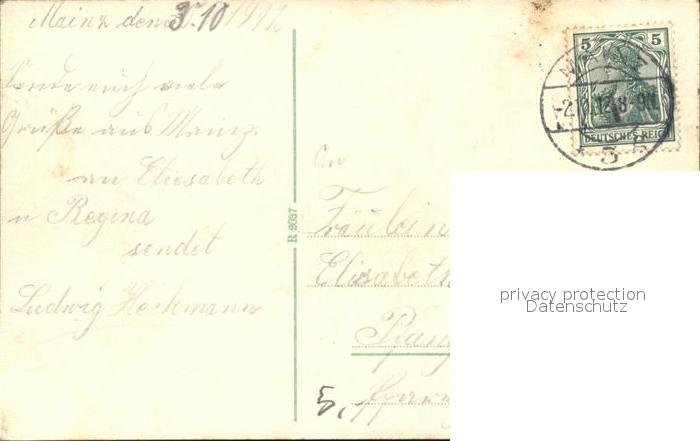 Mainz den 3.10 1912
Sende euch viele
Grüße aus Mainz.
an Eliesabeth
u Regina
sendet
Ludwig Heckmann
R 2037
An
Fräulein
Elisabeth
5,
5 5
DEUTSCHES REICH
privacy protection
Datenschutz